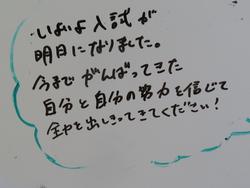 いよいよ入試が
明日になりました。
今までがんばってきた
自分と自分の努力を信じて
全力を出しきってきてください！